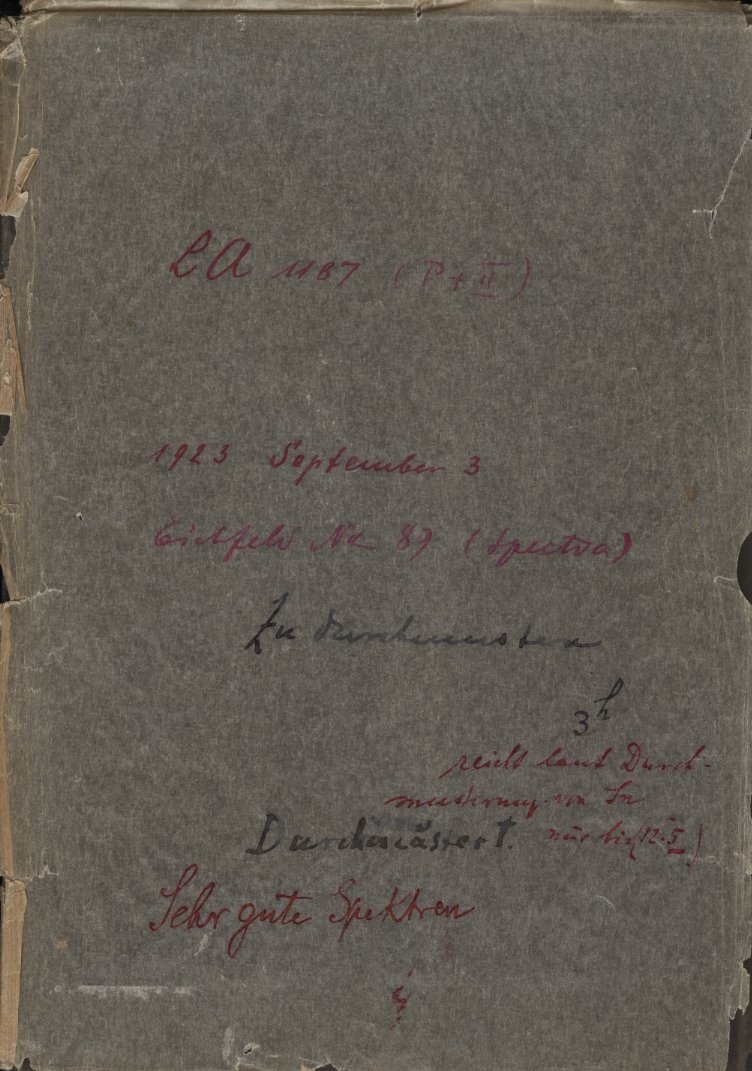 LA 1187 (P+II)
1923 September 3
Eichfeld No 87 (Spectra)
Zu durchmustern
3h
reicht laut Durch-
musterung von
nur bis (12.5)
Durchmustert.
Sehr gute Spektren